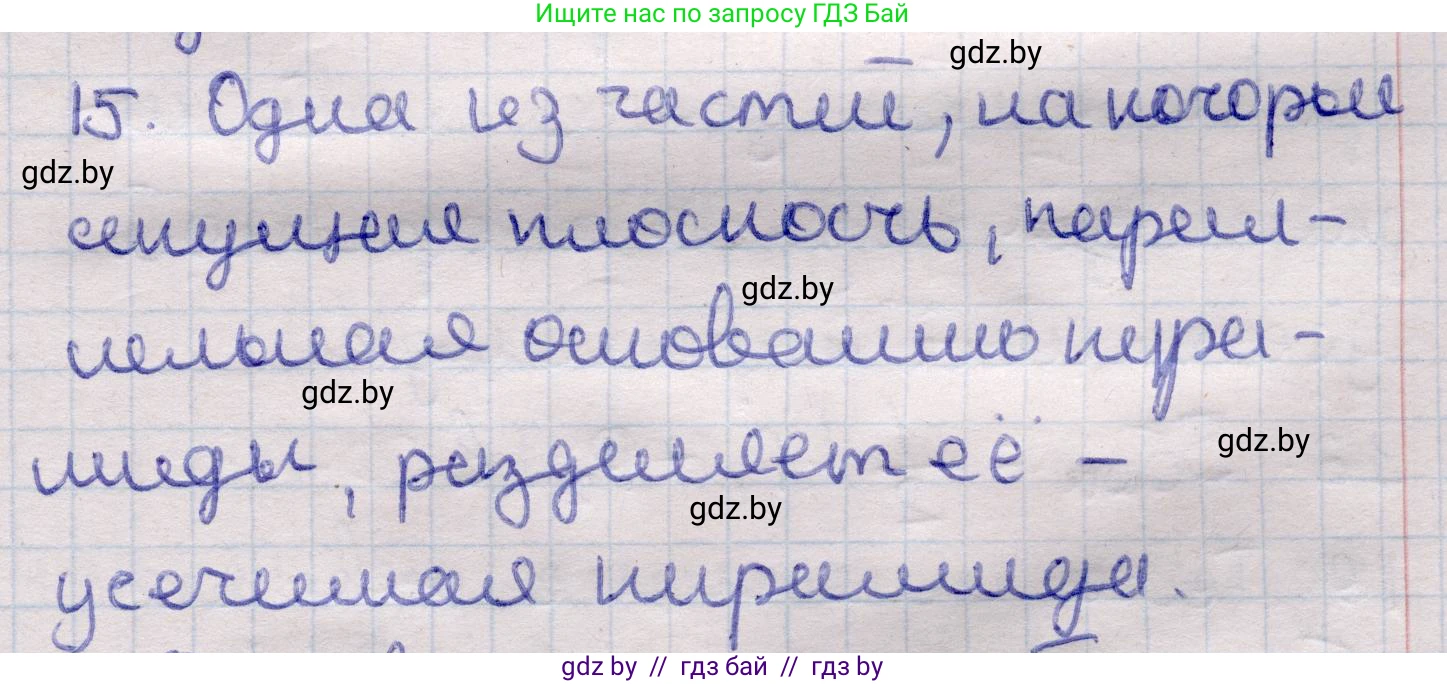 Ищите нас по запросу ГДЗ Бай
gdz.by
15. Одна из частей, на которые
gdz.by
секущая плоскость, парал-
gdz.by
лельная основанию пира-
gdz.by
миды, разделяет её –
gdz.by
gdz.by
усеченная пирамида.
gdz.by // гдз бай // гдз by